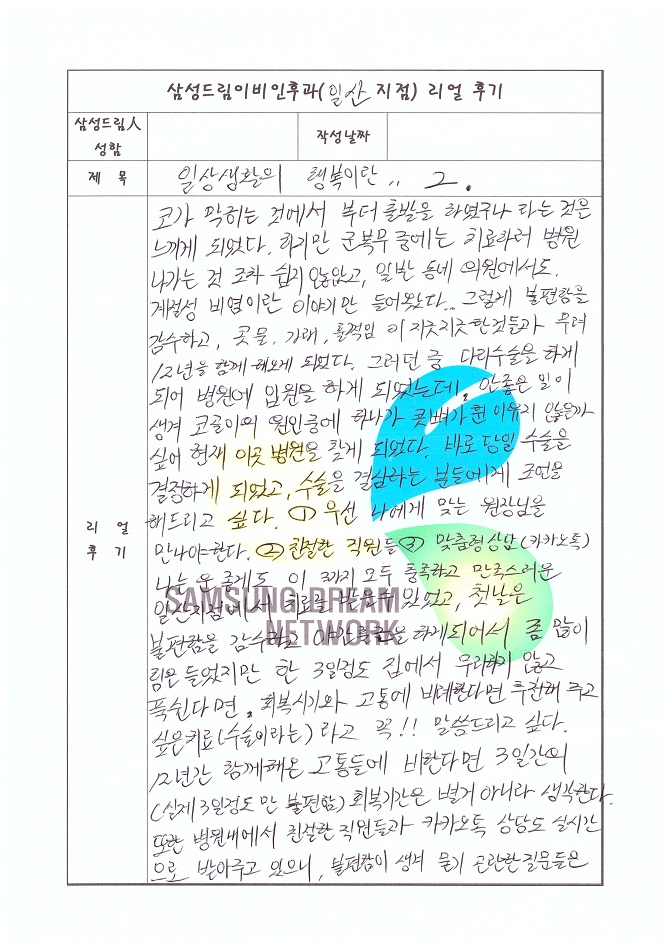 삼성드림이비인후과(일산 지점) 리얼 후기
삼성드림人
성함
작성날짜
제 목
일상생활의 행복이란.. 그.
코가 막히는 것에서 부터 출발을 하였구나 라는 것은
느끼게 되었다. 하지만 군복무 중에는 치료하러 병원
나가는 것 조차 쉽지 않았고, 일반 동네 의원에서도
계절성 비염이란 이야기만 들어왔다.. 그렇게 불편함을
감수하고, 콧물, 가래, 훌쩍임 이 지긋지긋한것들과 무려
12년을 함께 해오게 되었다. 그러던 중 다리수술을 하게
되어 병원에 입원을 하게 되었는데, 안좋은 일이
생겨 코골이의 원인중에 하나가 콧뼈가 휜 이유지 않을까
싶어 현재 이곳 병원을 찾게 되었다. 바로 당일 수술을
결정하게 되었고, 수술을 결심하는 분들에게 조언을
해드리고 싶다. ① 우선 나에게 맞는 원장님을
만나야한다. ② 친절한 직원들 ③ 맞춤형상담(카카오톡)
나는 운 좋게도 이 3가지 모두 충족하고 만족스러운
일산지점에서 치료를 받을수 있었고, 첫날은
불편함을 감수하고 야간 을 하게되어서 좀 많이
힘은 들었지만 한 3일정도 집에서 무리하지 않고
푹쉰다면, 회복시기와 고통에 비례한다면 추천해 주고
싶은치료(수술이라는) 라고 꼭!! 말씀드리고 싶다.
12년간 함께해온 고통들에 비한다면 3일간의
(실제 3일정도 만 불편함) 회복기간은 별거 아니라 생각한다.
또한 병원내에서 친절한 직원들과 카카오톡 상담도 실시간
으로 받아주고 있으니, 불편함이 생겨 묻기 곤란한 질문들은
리 얼
후 기
SAMSUNG DREAM
NETWORK